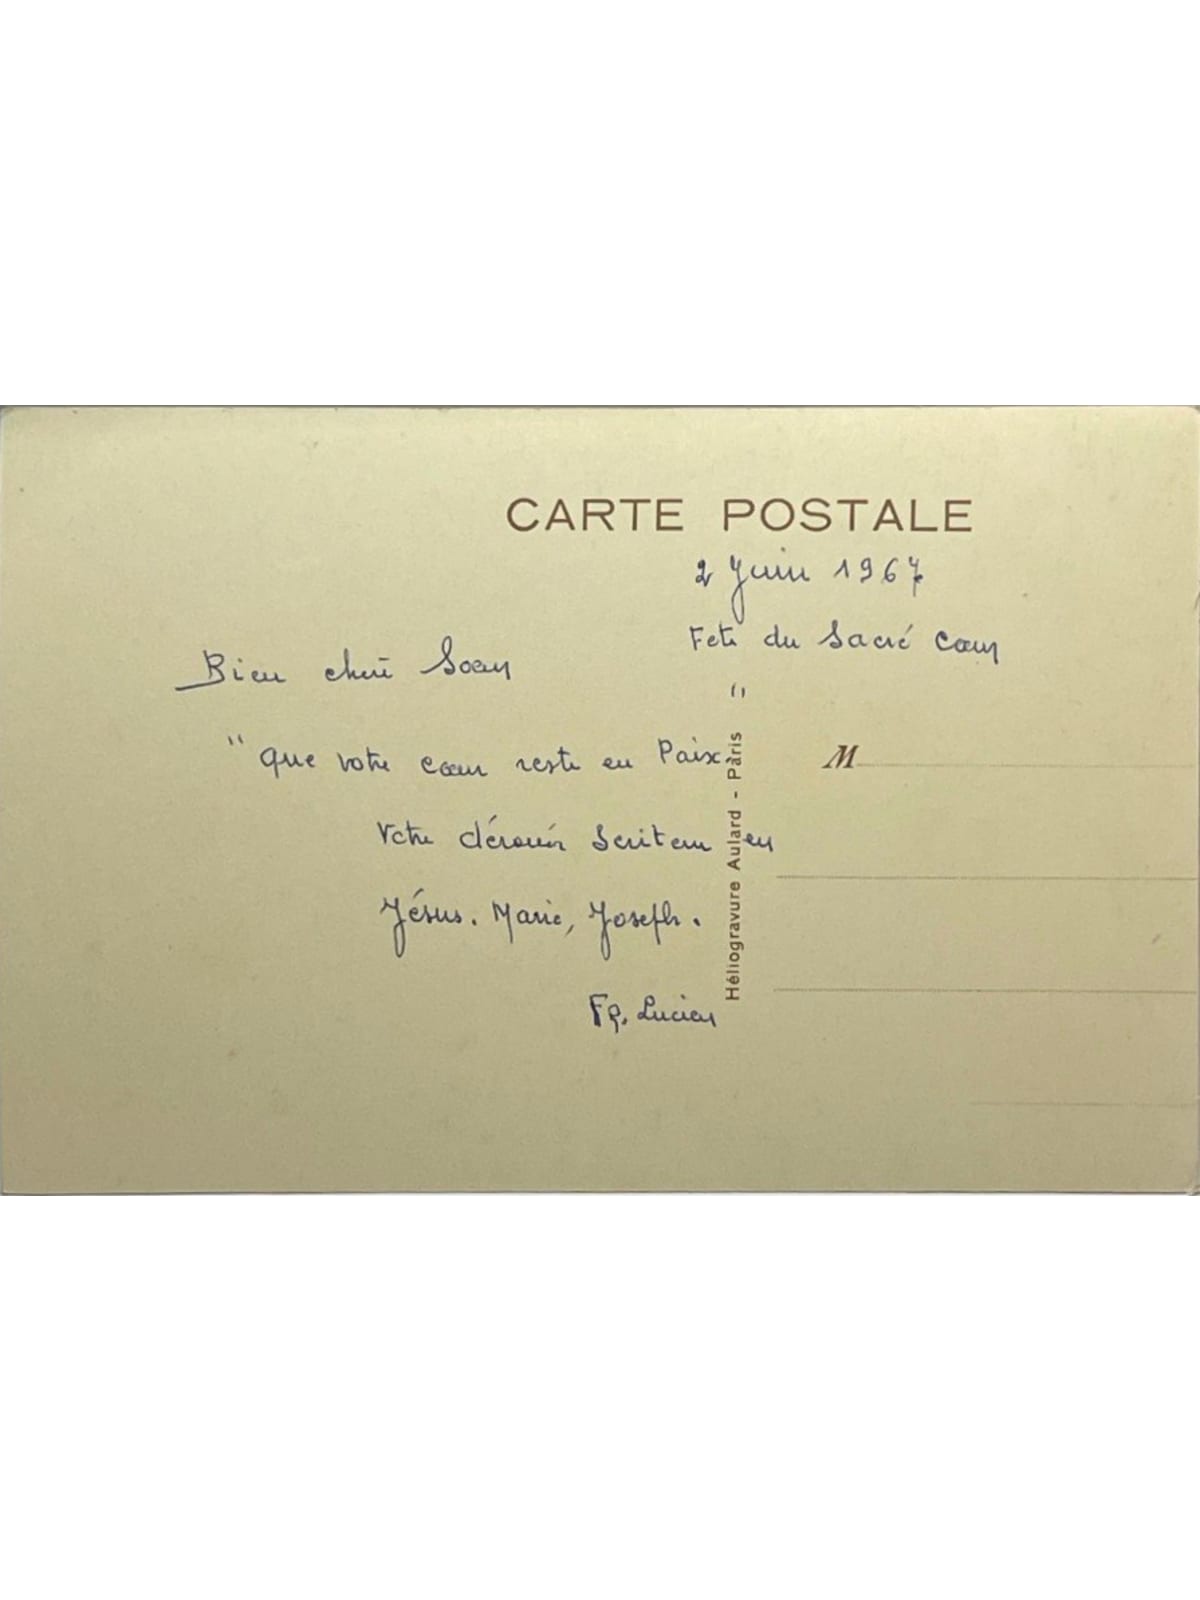 CARTE POSTALE
2 Juin 1967
Fête du Sacré Cœur
Bien chère Soeur
"Que votre cœur reste en Paix."
Votre dévoué serviteur en
Jésus. Marie, Joseph.
Fr. Lucien
Héliogravure Aulard - Paris
M